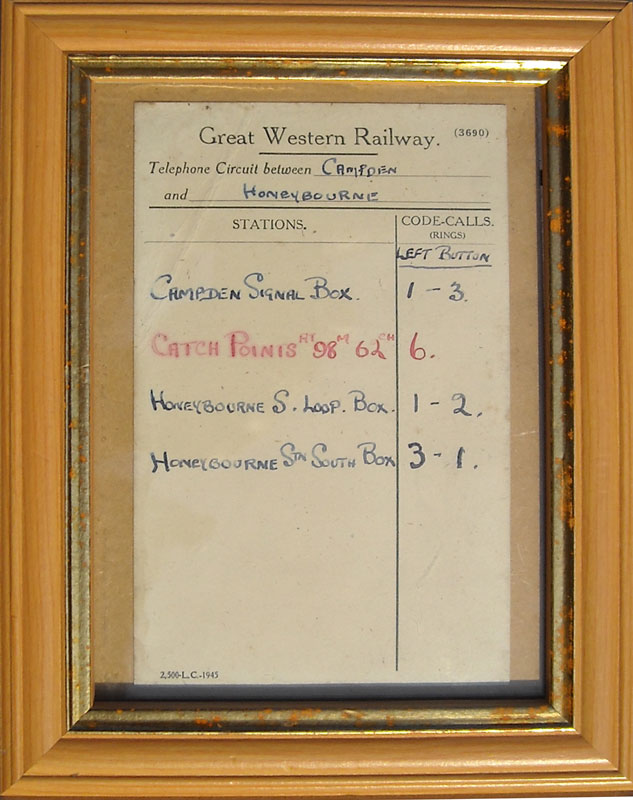 Great Western Railway. (3690)
Telephone Circuit between CAMPDEN
and HONEYBOURNE
STATIONS. CODE-CALLS.
(RINGS)
LEFT BUTTON
CAMPDEN SIGNAL BOX. 1 - 3.
CATCH POINTS AT 98M 62CH 6.
HONEYBOURNE S. LOOP. BOX. 1 - 2.
HONEYBOURNE STN SOUTH BOX 3 - 1.
2,500-L.C.-1945